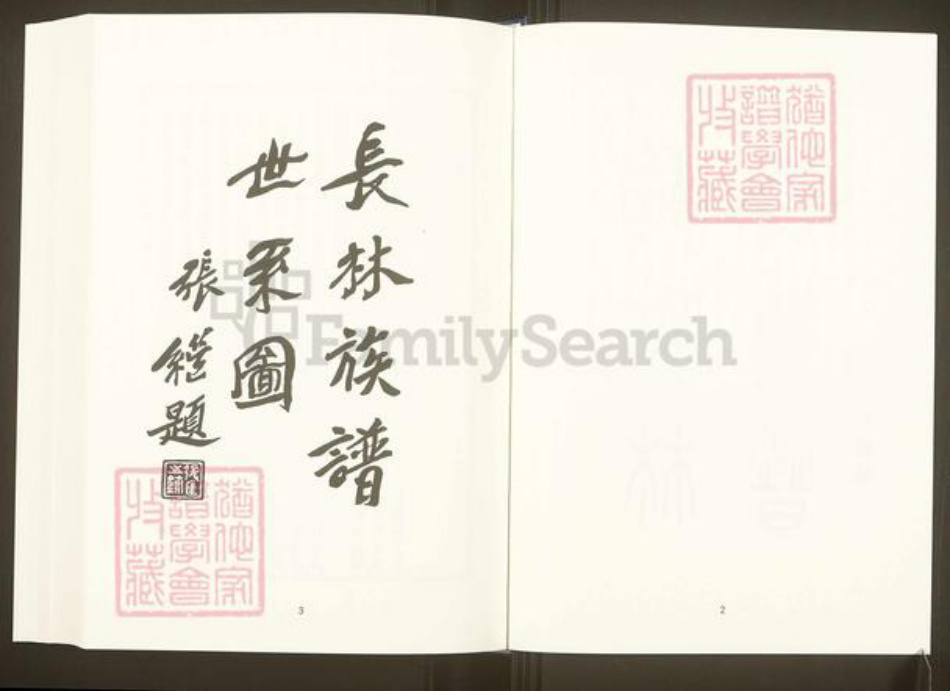 猶他家
譜學會
收藏
2
長林族譜
世系圖
張繼題
猶他家
譜學會
收藏
3
FamilySearch